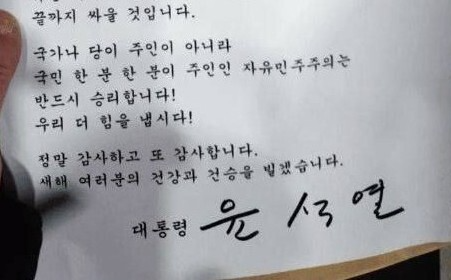 끝까지 싸울 것입니다.
국가나 당이 주인이 아니라
국민 한 분 한 분이 주인인 자유민주주의는
반드시 승리합니다!
우리 더 힘을 냅시다!
정말 감사하고 또 감사합니다.
새해 여러분의 건강과 건승을 빌겠습니다.
대통령 윤석열